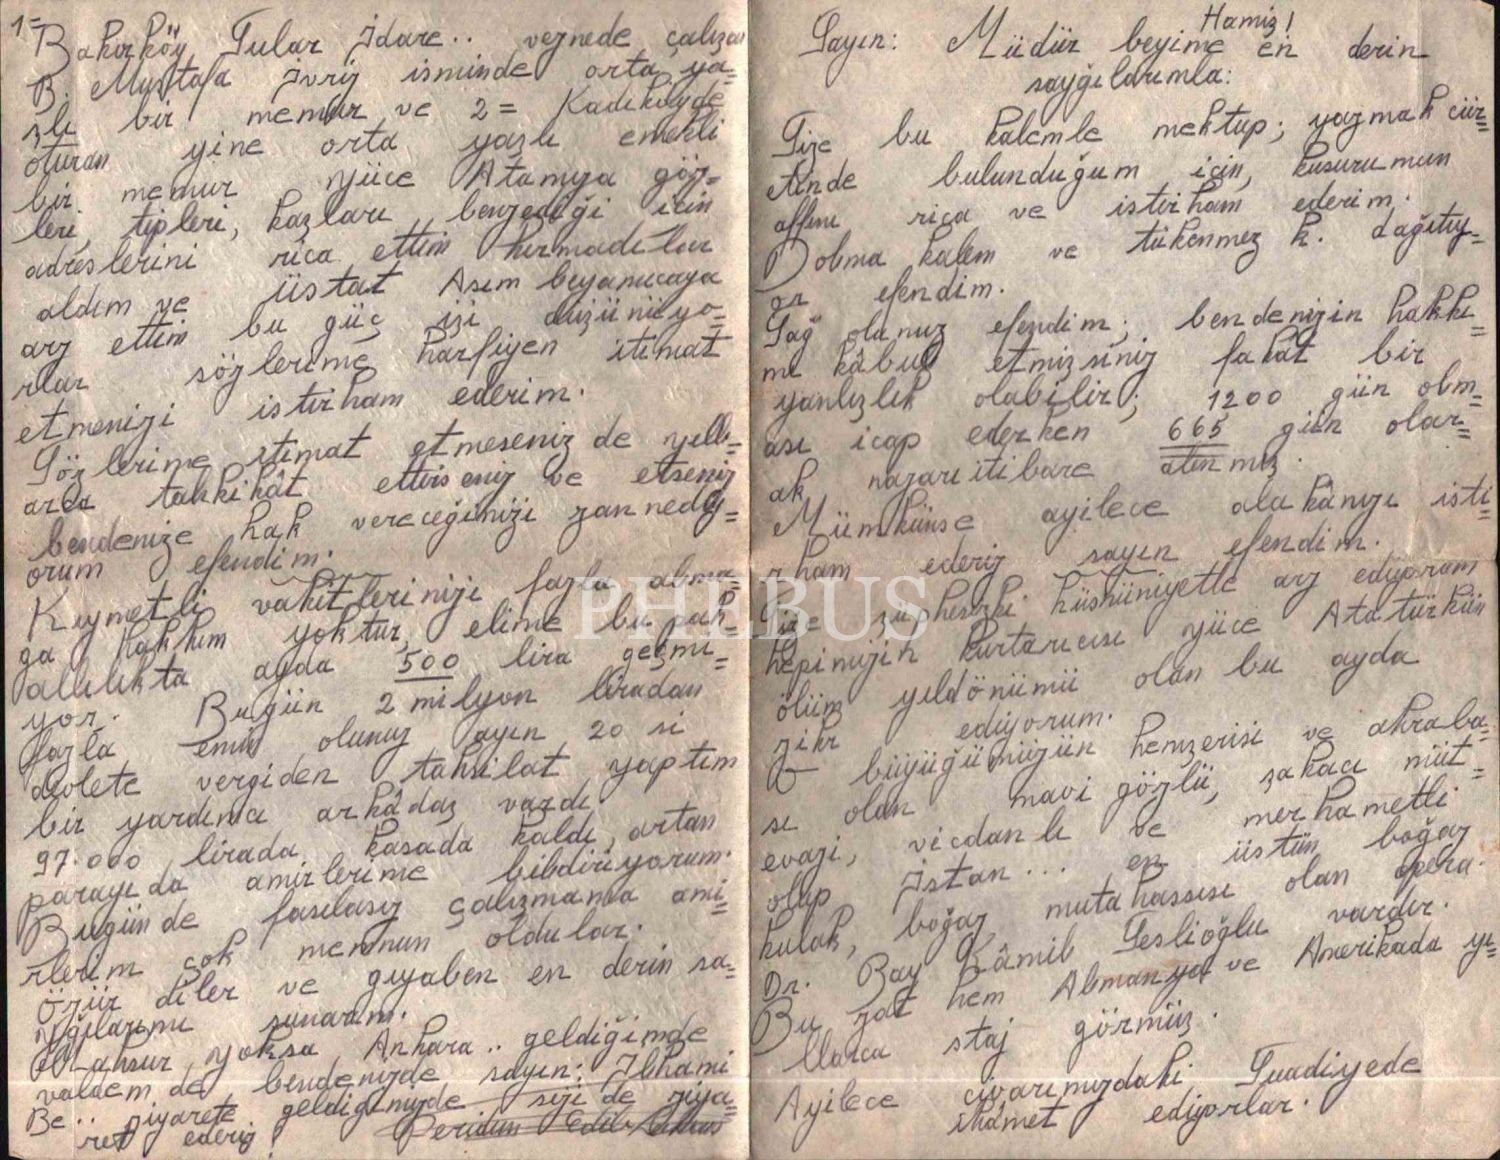 1=
Bakırköy Sular İdare.. veznede çalışan
B. Mustafa İvriz isminde orta ya=
şlı bir memur ve 2= Kadıköyde
oturan yine orta yaşlı emekli
bir memur yüce Atamıza göz=
leri, tipleri, kaşları benzediği için
adreslerini rica ettim kırmadılar
aldım ve üstat Asım beyamcaya
arz ettim bu güç işi düşünüyo=
rlar sözlerime harfiyen itimat
etmenizi istirham ederim.
Sözlerime itimat etmeseniz de yıll=
arca tahkikât ettirseniz ve etseniz
bendenize hak vereceğinizi zannedi=
yorum efendim.
Kıymetli vakitlerinizi fazla alma=
ğa hakkım yoktur, elime bu pah=
alılıkta ayda 500 lira geçmi=
yor. Bugün 2 milyon liradan
fazla emin olunuz ayın 20 si
devlete vergiden tahsilat yaptım
bir yardımcı arkâdaş vardı.
97.000 lirada kasada kaldı, artan
parayıda amirlerime bildiriyorum.
Bugünde fasılasız çalışmama ami=
rlerim çok memnun oldular.
Özür diler ve gıyaben en derin sa=
ygılarımı sunarım.
yoksa Ankara.. geldiğimde
valdem de, bendenizde sayın: İlhami
Be.. ziyarete geldiğimizde sizi de ziya=
ret ederiz!
Hamiş!
Sayın: Müdür beyime en derin
saygılarımla:
Size bu kalemle mektup; yazmak cür=
etinde bulunduğum için, kusurumun
affını rica ve istirham ederim.
Dolma kalem ve tükenmez k. dağıtıy=
or efendim.
Sağ olunuz efendim; bendenizin hakkı
mı kâbul etmişsiniz fakât bir
yanlışlık olabilir; 1200 gün olm=
ası icap ederken 665 gün olar=
ak nazarı itibare alınmış.
Mümkünse ayilece alakânızı isti
rham ederiz sayın efendim.
Size şüphesizki hüsnüniyetle arz ediyorum
hepinizin kurtarıcısı yüce Atatürkün
ölüm yıldönümü olan bu ayda
zikr ediyorum.
O büyüğümüzün hemşerisi ve akraba=
sı olan mavi gözlü, şakacı müt=
evazi, vicdanlı ve merhametli
olup İstan... en üstün boğaz
kulak, boğaz mutahassısı olan opera.
Dr. Bay Kâmil Seslioğlu vardır.
Bu zat hem Almanya ve Amerikada yı=
llarca staj görmüş.
Ayilece civarımızdaki Suadiyede
ikâmet ediyorlar.
PHEBUS